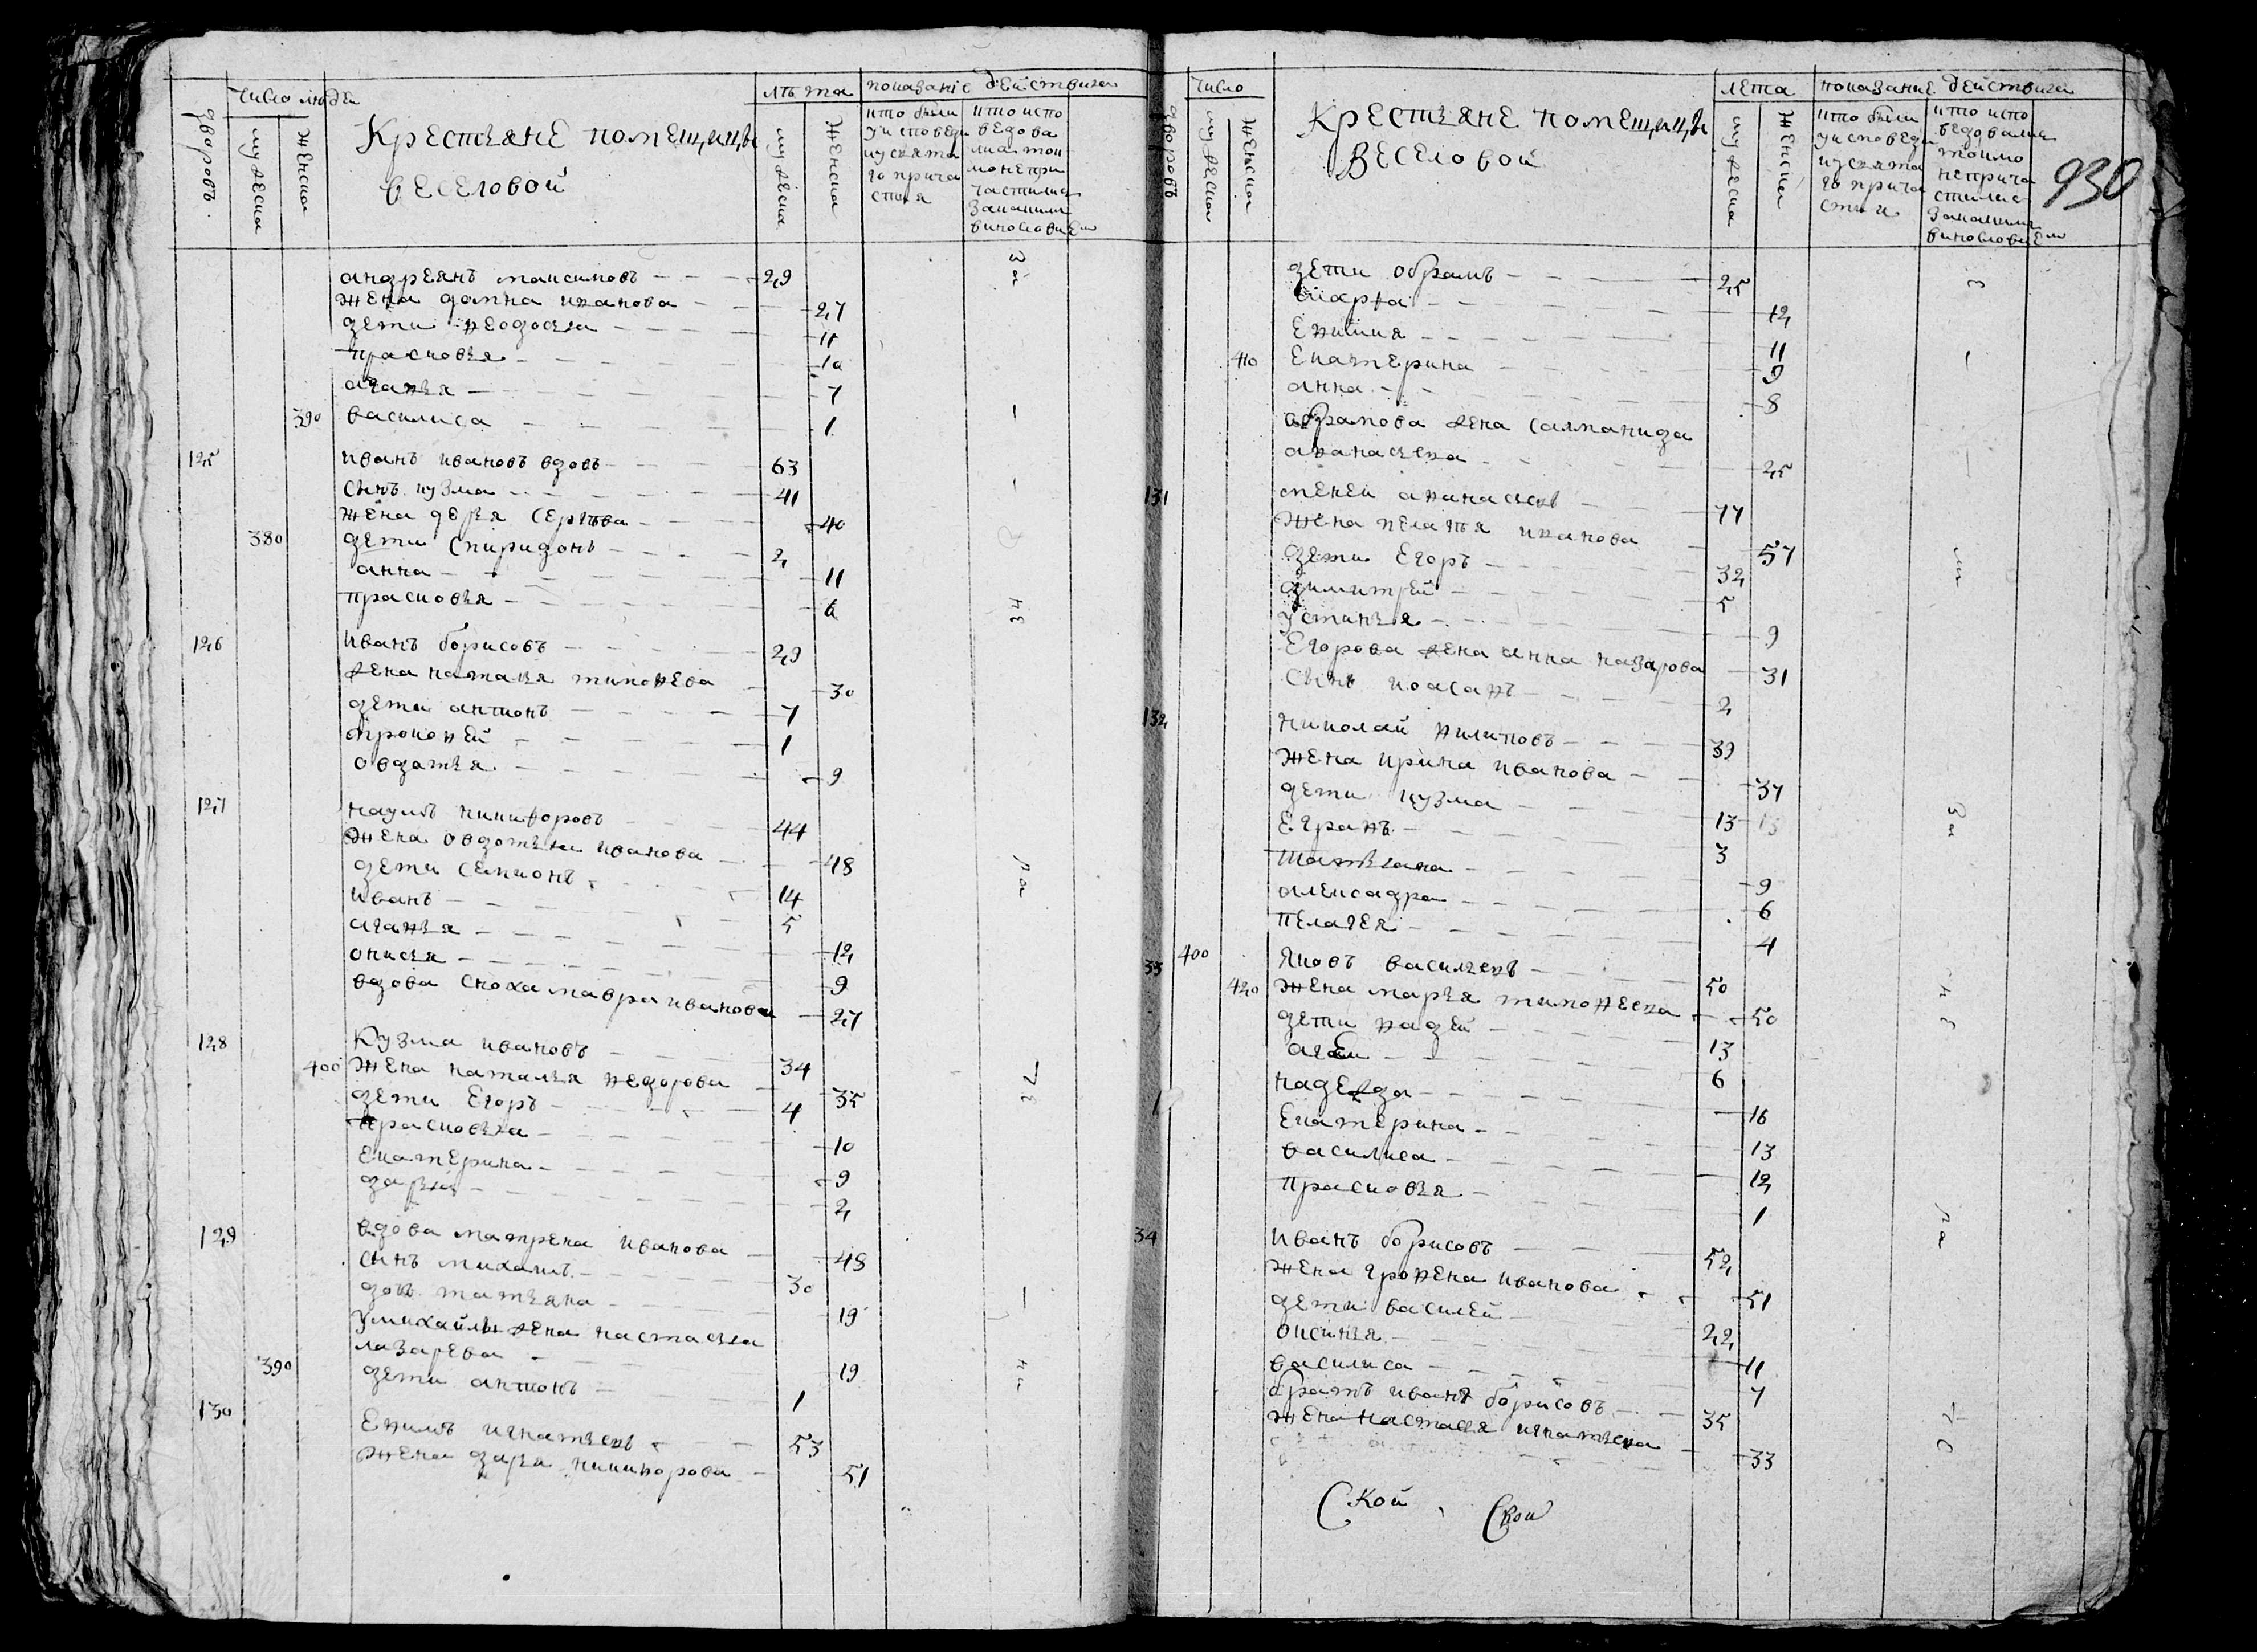 число людей
дворовъ
мужеска
женска
Крестьяне помещицы
веселовой
лѣта
мужеска
женска
показанiе действител
кто были
у исповеди
и у свята
го прича
стия
кто испо
ведова
лис токмо
не при
частилис
за каким
винословием
андреянъ максимовъ 29
жена домна иванова 27
дети феодосья 11
прасковья 10
агафья 7
390 василиса 1
125 иванъ ивановъ вдовъ 63
сынъ кузма 41
жена дарья сергѣева 40
380 дети спиридонъ 2
анна 11
прасковья 6
126 иванъ борисовъ 29
жена наталья тимофева 30
дети антонъ 7
прокофей 1
овдотья 9
127 наумъ никифоровъ 44
жена овдотья иванова 48
дети семионъ 14
иванъ 5
агафья 12
онисья 9
вдова сноха мавра иванова 27
128 Кузма ивановъ 34
400 жена наталья федорова 35
дети Егоръ 4
прасковья 10
екатерина 9
дарья 2
129 вдова матрена иванова 48
сынъ михаилъ 30
дочь татьяна 19
у михайлы жена настасья
лазарева 19
390 дети антонъ 1
130 Ефимъ игнатьевъ 53
жена дарья никифорова 51
число
дворовъ
мужеска
женска
Крестьяне помещицы
Веселовой
лета
мужеска
женска
показание действител
кто были
у исповеди
и у свята
го прича
стия
кто испо
ведовалис
токмо
не прича
стилис
за каким
винословием
930
дети обрамъ 25
марфа 12
Ефимия 11
410 Екатерина 9
анна 8
абрамова жена саламанида
афанасьева 25
131 мекеи афанасьевъ 77
жена пелагея иванова 57
дети Егоръ 32
димитрей 5
устинья 9
Егорова жена анна назарова 31
сынъ иоасафъ 2
132 николай филиповъ 39
жена ирина иванова 37
дети кузма 13
Еграфъ 3
татьяна 9
алексадра 6
пелагея 4
33 400 яковъ васильевъ 50
420 жена марья тимофеева 50
дети фадей 13
агей 6
надежда 16
Екатерина 13
василиса 12
прасковья 1
34 иванъ борисовъ 52
жена грофена иванова 51
дети василей 22
оксинья 11
василиса 7
братъ иванъ борисовъ 35
жена настасья игнатьева 33
Ской Ской